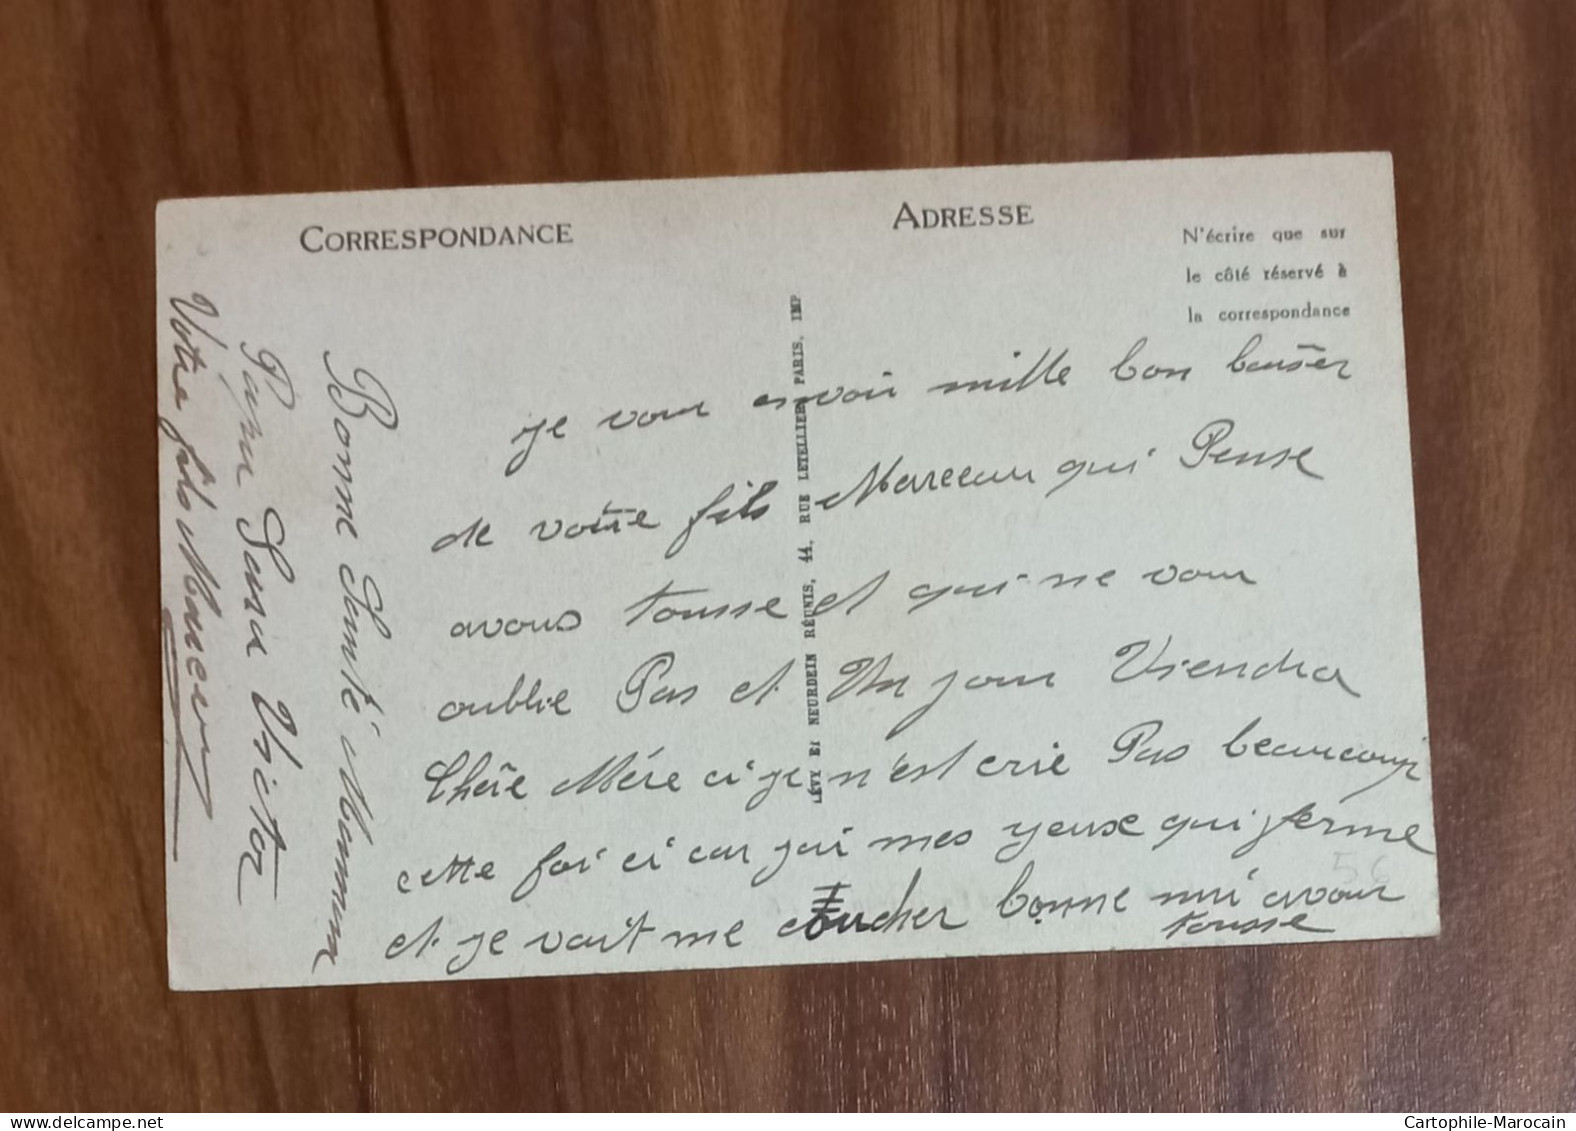 CORRESPONDANCE
ADRESSE
N'écrire que sur
le côté réservé à
la correspondance
LÉVY Et NEURDEIN RÉUNIS, 44, RUE LETELLIER, PARIS, IMP
je vous envoir mille bon baiser
de votre fils Marceau qui Pense
avous tousse et qui ne vour
oublie Pas et Un jour Viendra
Chère Mére ci je n'est crie Pas beaucoup
cette foi ci car jai mes yeuse qui ferme
et je vait me coucher bonne nui avour
tousse
56
Bonne Santé Maman
Papa Sera Victor
Votre fils Marceau
Cartophile-Marocain